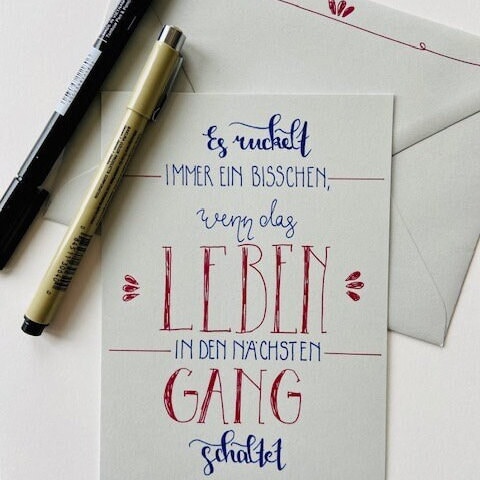 Es ruckelt
IMMER EIN BISSCHEN,
wenn das
LEBEN
IN DEN NÄCHSTEN
GANG
schaltet